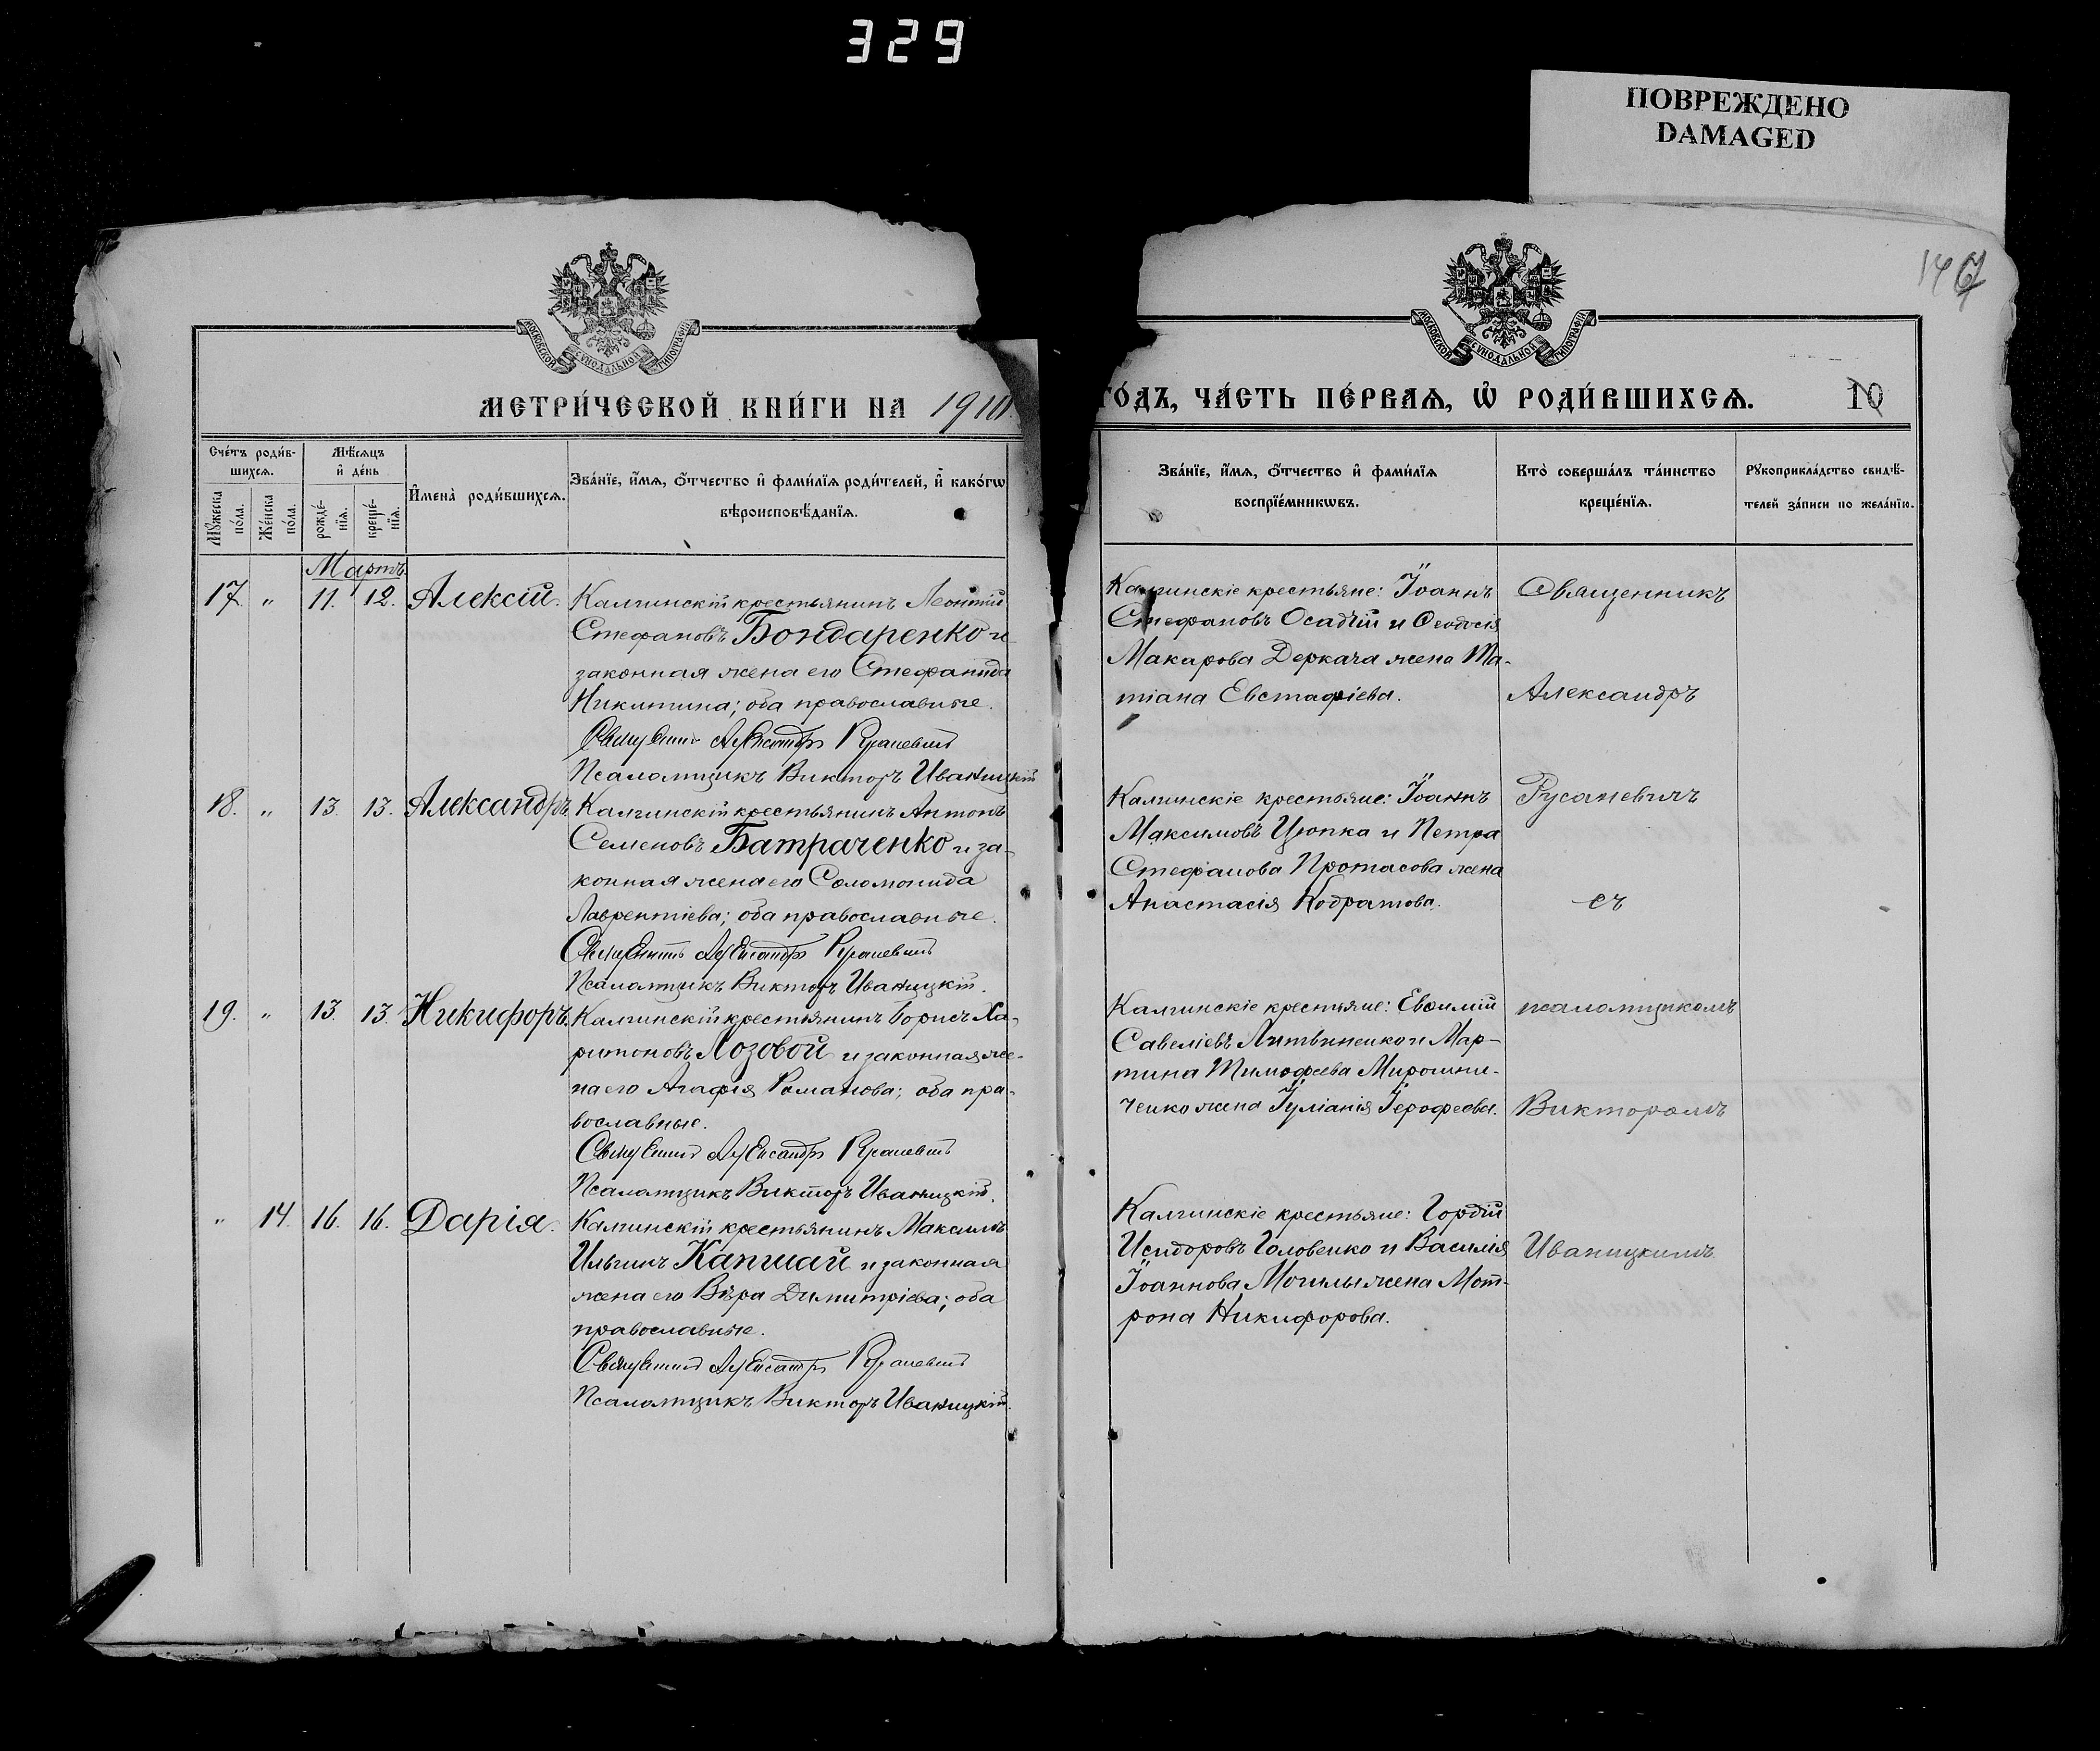 329
ПОВРЕЖДЕНО
DAMAGED
МОСКОВСКОЙ СѴНОДАЛЬНОЙ ТИПОГРАФІИ
МОСКОВСКОЙ СѴНОДАЛЬНОЙ ТИПОГРАФІИ
МЕТРИ́ЧЕСКОЙ КНИ́ГИ НА 1910
ГО́ДЪ, ЧА́СТЬ ПЕ́РВАѦ, Ѡ҆ РОДИ́ВШИХСѦ.
10
Сче́тъ роди́в-
шихсѧ.
Мѣ́сѧцъ
и҆ де́нь
Мꙋ́жеска
по́ла.
Же́нска
по́ла.
рожде́-
нїѧ.
креще́-
нїѧ.
И҆мена̀ роди́вшихсѧ.
Зва́нїе, и҆́мѧ, ѻ҆́тчество и҆ фами́лїѧ роди́телей, и҆ како́гѡ
вѣроисповѣ́данїѧ.
Зва́нїе, и҆́мѧ, ѻ҆́тчество и҆ фами́лїѧ
воспрїе́мникѡвъ.
Кто̀ соверша́лъ та́инство
креще́нїѧ.
Рꙋкоприкла́дство свидѣ́-
телей за́писи по жела́нїю.
Мартъ
17. " 11. 12. Алексій.
Калчинскій крестьянинъ Леонтій
Стефановъ Бондаренко и
законная жена его Стефанида
Никитина; оба православные.
Священникъ Александръ Русаневичъ
Псаломщикъ Викторъ Иваницкій
Калчинскіе крестьяне: Іоаннъ
Стефановъ Осадчій и Ѳеодосія
Макарова Деркача жена Та-
тіана Евстафіева.
Священникъ
Александръ
18. " 13. 13. Александръ.
Калчинскій крестьянинъ Антонъ
Семеновъ Батраченко и за-
конная жена его Соломонида
Лаврентіева; оба православные.
Священникъ Александръ Русаневичъ
Псаломщикъ Викторъ Иваницкій.
Калчинскіе крестьяне: Іоаннъ
Максимовъ Цюпка и Петра
Стефанова Протасова жена
Анастасія Кодратова.
Русаневичъ
съ
19. " 13. 13. Никифоръ.
Калчинскій крестьянинъ Борисъ Ха-
ритоновъ Лозовой и законная же-
на его Агафія Романова; оба пра-
вославные.
Священникъ Александръ Русаневичъ
Псаломщикъ Викторъ Иваницкій.
Калчинскіе крестьяне: Евѳимій
Савеліевъ Литвиненко и Мар-
тина Тимофеева Мирошни-
ченко жена Іуліанія Іерофеева.
псаломщикомъ
Викторомъ
" 14. 16. 16. Дарія.
Калчинскій крестьянинъ Максимъ
Ильинъ Капшай и законная
жена его Вѣра Димитріева; оба
православные.
Священникъ Александръ Русаневичъ
Псаломщикъ Викторъ Иваницкій.
Калчинскіе крестьяне: Гордій
Исидоровъ Головенко и Василія
Іоаннова Могилы жена Мот-
рона Никифорова.
Иваницкимъ.